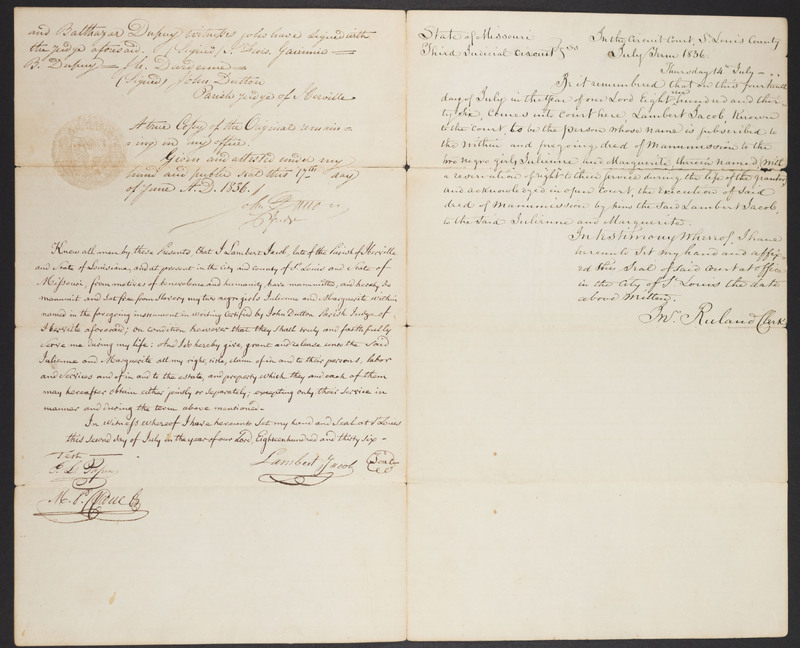 and Balthazar Dupuy witnesses who have signed with
the judge aforesaid. (Signed)
B. Dupuy = Dardenne =
(Signed) John Dutton
Parish judge of Iberville
A true Copy of the Original remain=
ing in my office.
Given and attested under my
hand and public seal this 17th day
of June A.D. 1836.
Know all men by these Presents, that I Lambert Jacob, late of the Parish of Iberville
and State of Louisiana, and at present in the City and County of St. Louis and State of
Missouri, from motives of benevolence and humanity, have manumitted, and hereby do
manumit and set free from Slavery my two negro girls Julienne and Marguerite within
named in the foregoing instrument in writing certified by John Dutton Parish Judge of
Iberville aforesaid; on condition however that they shall truly and faithfully
serve me during my life: And I do hereby give, grant and release unto the said
Julienne and Marguerite all my right, title, claim of in and to their persons, labor
and Services and of in and to the estate, and property which they and each of them
may hereafter obtain either jointly or separately; excepting only their Service in
manner and during the term above mentioned.
In witness whereof I have hereunto set my hand and Seal at St Louis
this second day of July in the year of our Lord, Eighteen hundred and thirty six -
Test
Lambert Jacob Seal
State of Missouri
Third Judicial Circuit
In the Circuit Court, St Louis County
July Term 1836
Thursday 14th July
Be it remembered that on this fourteenth
day of July in the Year of our Lord Eighteen hundred and thir-
ty six, comes into Court here, Lambert Jacob, Known
to the Court, to be the person whose name is subscribed to
the within and foregoing deed of Manumission to the
two negro girls, Julienne and Marguerite therein named (with
a reservation of right to their service during the life of the grantor)
and acknowledged in open Court, the Execution of said
deed of Manumission by him the said Lambert Jacob,
to the said Julienne and Marguerite.
In testimony Whereof, I have
hereunto Set my hand and affix-
ed the Seal of said Court at office
in the City of St Louis the date
above Written.
Jno. Ruland Clerk